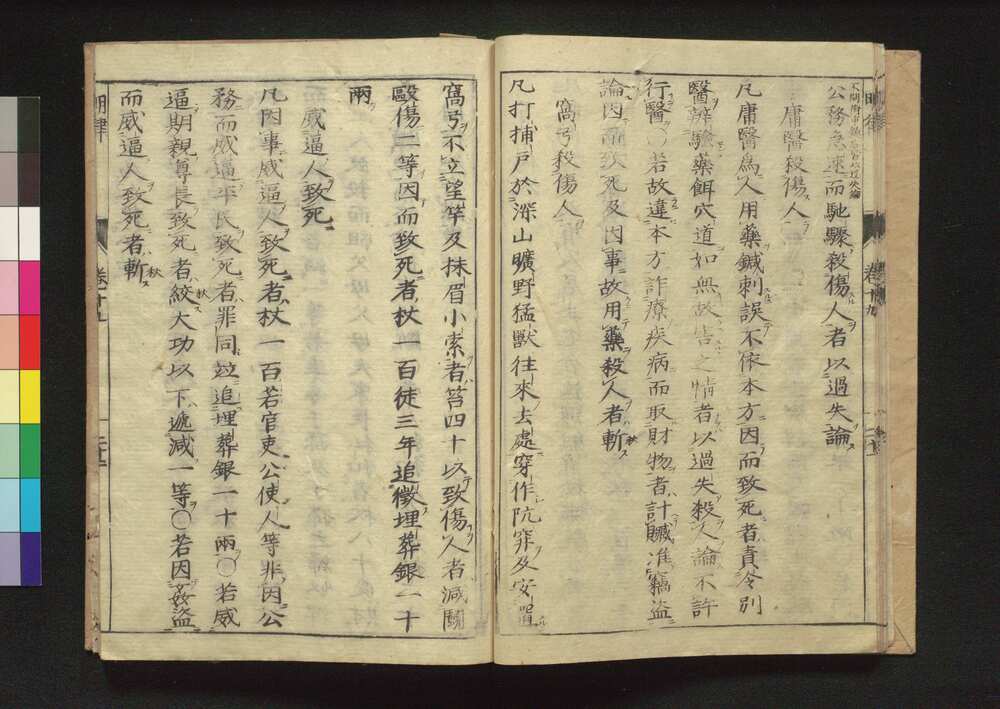 公務急速而馳驟殺傷人者以過失論
庸醫殺傷人
凡庸醫為人用藥鍼刺誤不依本方因而致死者責令別
醫辨驗藥餌穴道如無故害之情者以過失殺人論不許
行醫〇若故違本方詐療疾病而取財物者計贓准竊盜
論因而致死及因事故用藥殺人者斬秋
窩弓殺傷人
凡打捕戸於深山曠野猛獸往來去處穿作阬穽及安置
窩弓不立望竿及抹眉小索者笞四十以致傷人者減鬪
毆傷二等因而致死者杖一百徒三年追徴埋葬銀一十
兩
威逼人致死
凡因事威逼人致死者杖一百若官吏公使人等非因公
務而威逼平民致死者罪同竝追埋葬銀一十兩〇若威
逼期親尊長致死者絞秋大功以下遞減一等〇若因姦盜
而威逼人致死者斬秋
明律
卷十九